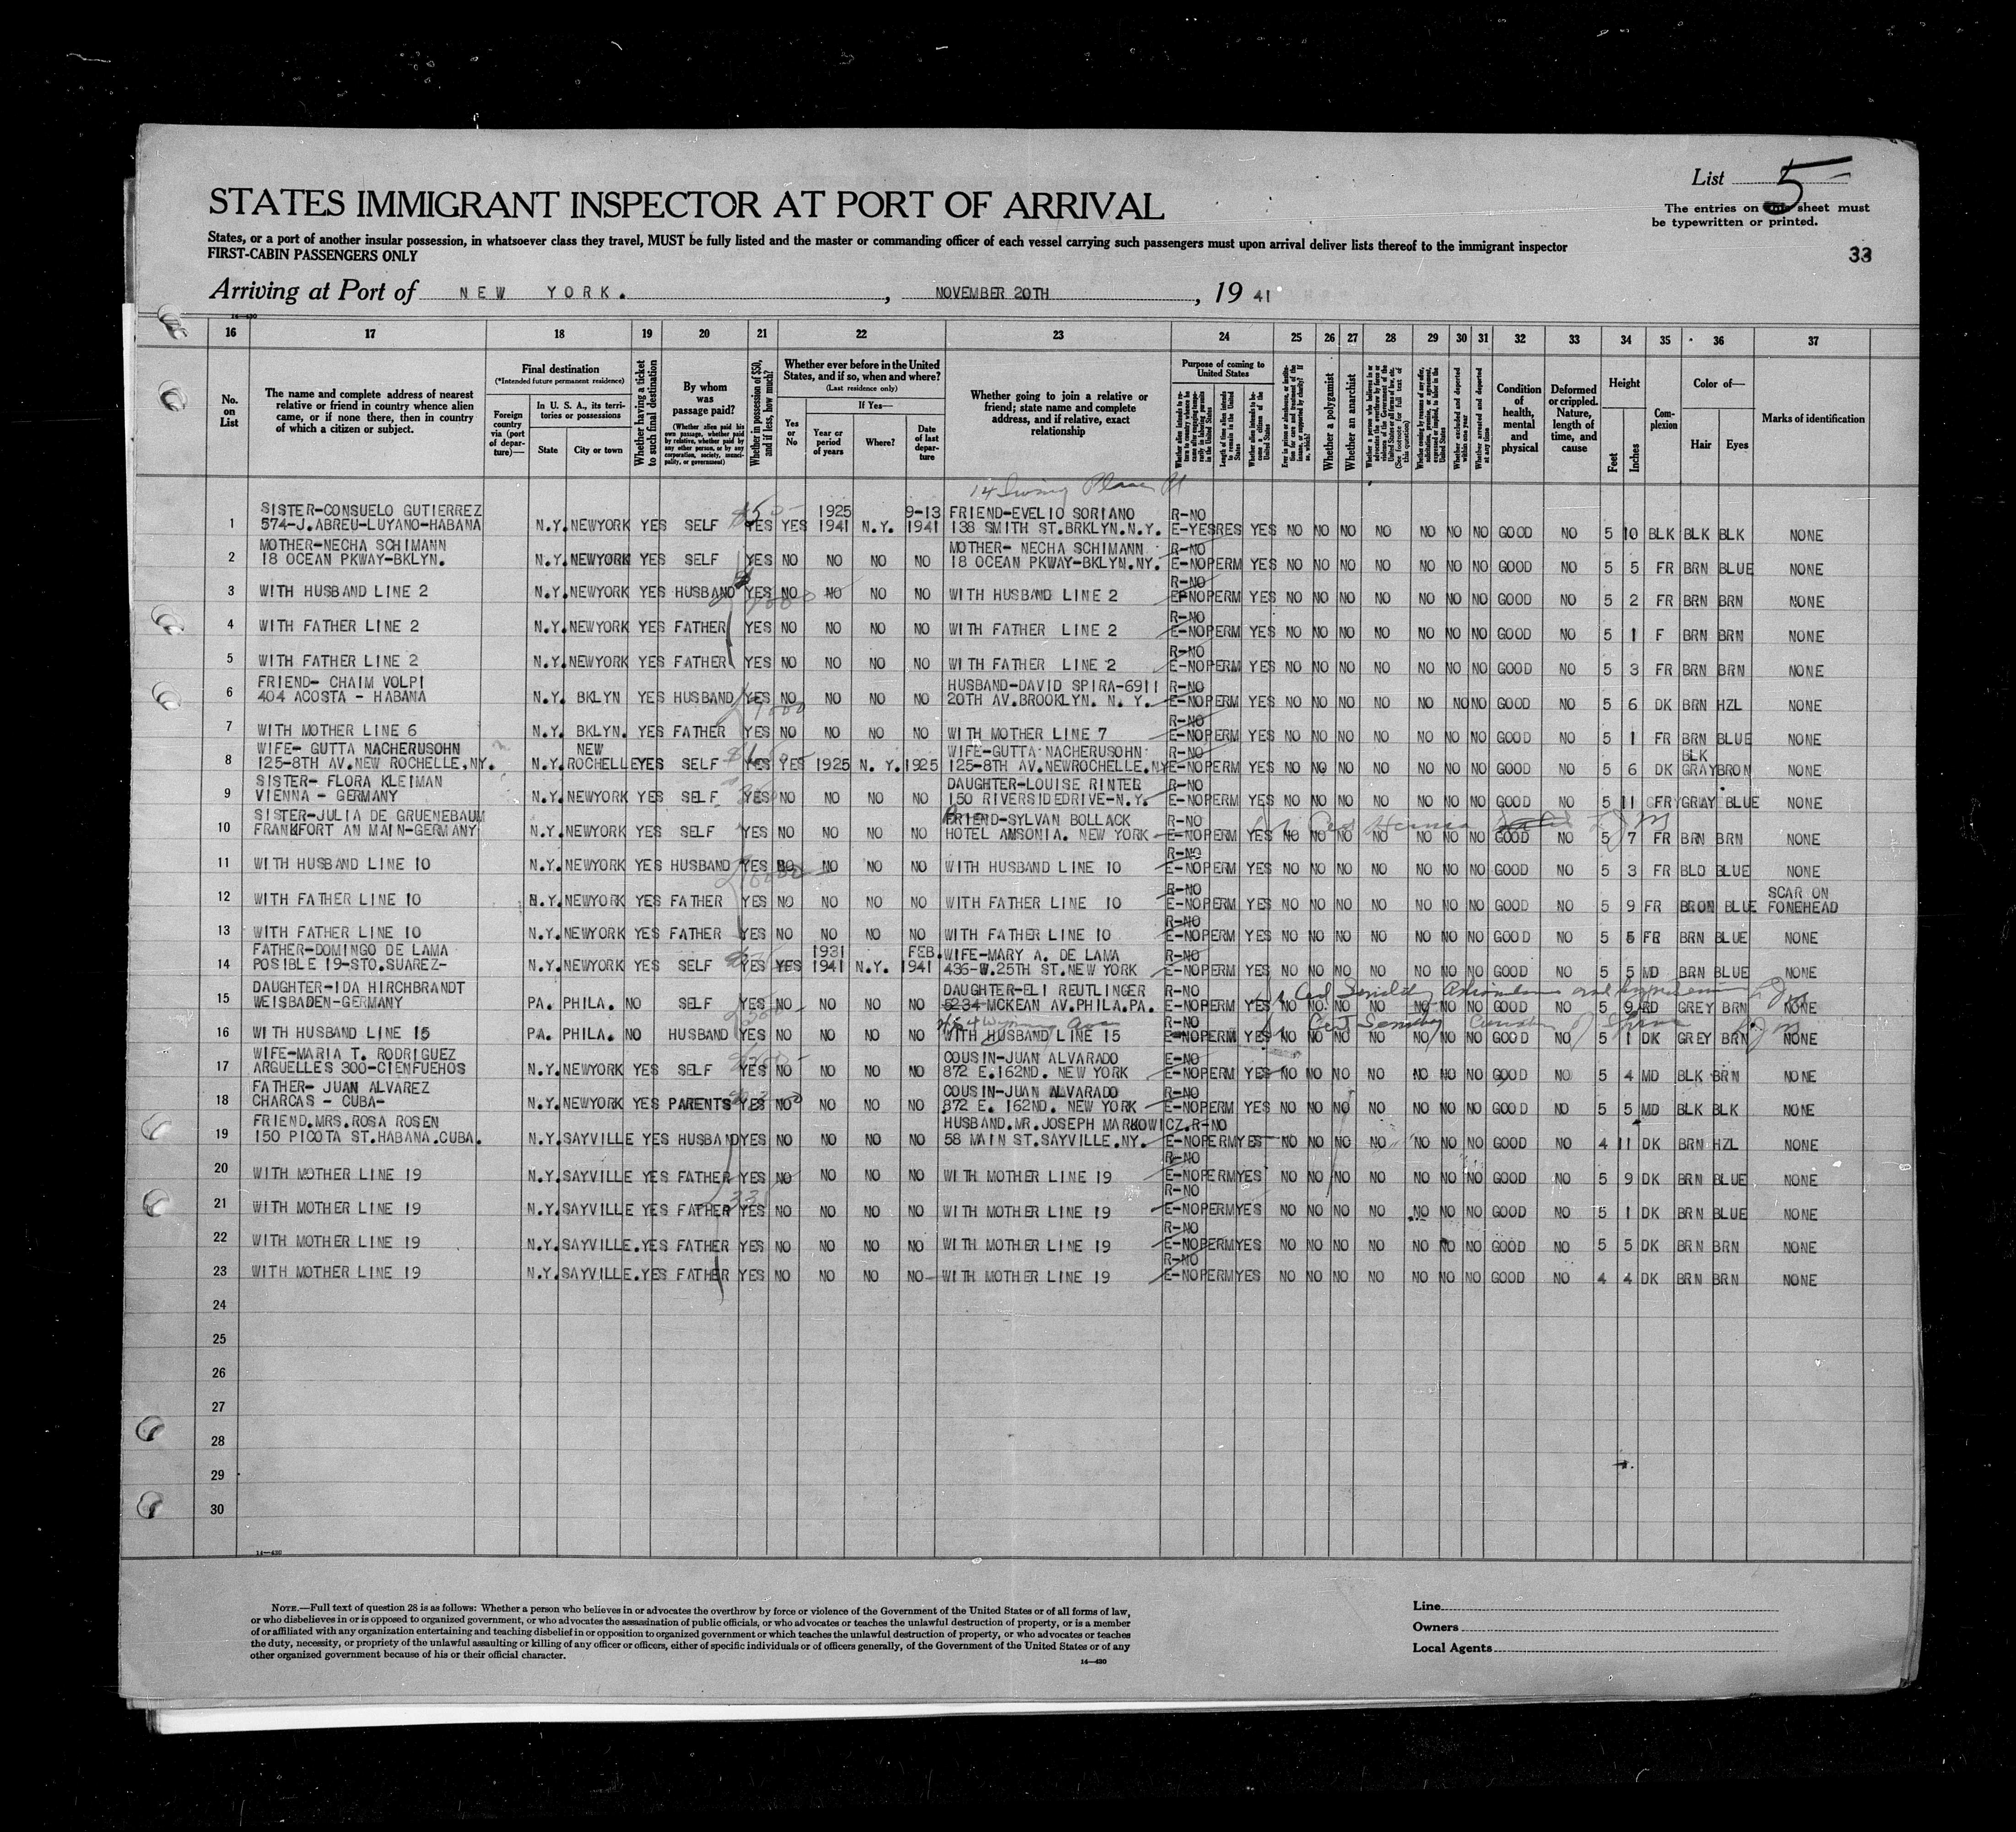 List 5
STATES IMMIGRANT INSPECTOR AT PORT OF ARRIVAL
The entries on this sheet must
be typewritten or printed.
States, or a port of another insular possession, in whatsoever class they travel, MUST be fully listed and the master or commanding officer of each vessel carrying such passengers must upon arrival deliver lists thereof to the immigrant inspector
FIRST-CABIN PASSENGERS ONLY
33
Arriving at Port of NEW YORK. , NOVEMBER 20TH , 19 41
14-430
16 17 18 19 20 21 22 23 24 25 26 27 28 29 30 31 32 33 34 35 36 37
No. on List
The name and complete address of nearest relative or friend in country whence alien came, or if none there, then in country of which a citizen or subject.
Final destination
(*Intended future permanent residence)
Foreign country via (port of departure)—
In U. S. A., its territories or possessions
State
City or town
Whether having a ticket to such final destination
By whom was passage paid?
(Whether alien paid his own passage, whether paid by relative, whether paid by any other person, or by any corporation, society, municipality, or government)
Whether in possession of $50, and if less, how much?
Whether ever before in the United States, and if so, when and where?
(Last residence only)
Yes or No
If Yes—
Year or period of years
Where?
Date of last departure
Whether going to join a relative or friend; state name and complete address, and if relative, exact relationship
Purpose of coming to United States
Whether a polygamist
Whether an anarchist
Condition of health, mental and physical
Deformed or crippled. Nature, length of time, and cause
Height
Feet
Inches
Complexion
Color of—
Hair
Eyes
Marks of identification
14 Irving Place
SISTER-CONSUELO GUTIERREZ 1925 9-13 FRIEND-EVELIO SORIANO R-NO
1 574-J.ABREU-LUYANO-HABANA N.Y. NEWYORK YES SELF YES YES 1941 N.Y. 1941 138 SMITH ST.BRKLYN.N.Y. E-YES RES YES NO NO NO NO NO NO NO GOOD NO 5 10 BLK BLK BLK NONE
MOTHER-NECHA SCHIMANN MOTHER- NECHA SCHIMANN R-NO
2 18 OCEAN PKWAY-BKLYN. N.Y. NEWYORK YES SELF YES NO NO NO NO 18 OCEAN PKWAY-BKLYN.NY. E-NO PERM YES NO NO NO NO NO NO NO GOOD NO 5 5 FR BRN BLUE NONE
R-NO
3 WITH HUSBAND LINE 2 N.Y. NEWYORK YES HUSBAND YES NO NO NO NO WITH HUSBAND LINE 2 E-NO PERM YES NO NO NO NO NO NO NO GOOD NO 5 2 FR BRN BRN NONE
R-NO
4 WITH FATHER LINE 2 N.Y. NEWYORK YES FATHER YES NO NO NO NO WITH FATHER LINE 2 E-NO PERM YES NO NO NO NO NO NO NO GOOD NO 5 1 F BRN BRN NONE
R-NO
5 WITH FATHER LINE 2 N.Y. NEWYORK YES FATHER YES NO NO NO NO WITH FATHER LINE 2 E-NO PERM YES NO NO NO NO NO NO NO GOOD NO 5 3 FR BRN BRN NONE
FRIEND- CHAIM VOLPI HUSBAND-DAVID SPIRA-6911 R-NO
6 404 ACOSTA - HABANA N.Y. BKLYN YES HUSBAND YES NO NO NO NO 20TH AV.BROOKLYN. N. Y. E-NO PERM YES NO NO NO NO NO NO NO GOOD NO 5 6 DK BRN HZL NONE
R-NO
7 WITH MOTHER LINE 6 N.Y. BKLYN. YES FATHER YES NO NO NO NO WITH MOTHER LINE 7 E-NO PERM YES NO NO NO NO NO NO NO GOOD NO 5 1 FR BRN BLUE NONE
WIFE- GUTTA NACHERUSOHN NEW WIFE-GUTTA NACHERUSOHN R-NO BLK
8 125-8TH AV.NEW ROCHELLE.NY. N.Y. ROCHELLE YES SELF YES YES 1925 N. Y. 1925 125-8TH AV.NEWROCHELLE.NY E-NO PERM YES NO NO NO NO NO NO NO GOOD NO 5 6 DK GRAY BRON NONE
SISTER- FLORA KLEIMAN DAUGHTER-LOUISE RINTER R-NO
9 VIENNA - GERMANY N.Y. NEWYORK YES SELF YES NO NO NO NO 150 RIVERSIDEDRIVE-N.Y. E-NO PERM YES NO NO NO NO NO NO NO GOOD NO 5 11 FR GRAY BLUE NONE
SISTER-JULIA DE GRUENEBAUM FRIEND-SYLVAN BOLLACK R-NO
10 FRANKFORT AN MAIN-GERMANY N.Y. NEWYORK YES SELF YES NO NO NO NO HOTEL AMSONIA. NEW YORK E-NO PERM YES NO NO NO NO NO NO NO GOOD NO 5 7 FR BRN BRN NONE
R-NO
11 WITH HUSBAND LINE 10 N.Y. NEWYORK YES HUSBAND YES NO NO NO NO WITH HUSBAND LINE 10 E-NO PERM YES NO NO NO NO NO NO NO GOOD NO 5 3 FR BLO BLUE NONE
R-NO SCAR ON
12 WITH FATHER LINE 10 N.Y. NEWYORK YES FATHER YES NO NO NO NO WITH FATHER LINE 10 E-NO PERM YES NO NO NO NO NO NO NO GOOD NO 5 9 FR BRON BLUE FONEHEAD
R-NO
13 WITH FATHER LINE 10 N.Y. NEWYORK YES FATHER YES NO NO NO NO WITH FATHER LINE 10 E-NO PERM YES NO NO NO NO NO NO NO GOOD NO 5 5 FR BRN BLUE NONE
FATHER-DOMINGO DE LAMA 1931 FEB. WIFE-MARY A. DE LAMA R-NO
14 POSIBLE 19-STO.SUAREZ- N.Y. NEWYORK YES SELF YES YES 1941 N.Y. 1941 436-W.25TH ST.NEW YORK E-NO PERM YES NO NO NO NO NO NO NO GOOD NO 5 5 MD BRN BLUE NONE
DAUGHTER-IDA HIRCHBRANDT DAUGHTER-ELI REUTLINGER R-NO
15 WEISBADEN-GERMANY PA. PHILA. NO SELF YES NO NO NO NO 5234-MCKEAN AV.PHILA.PA. E-NO PERM YES NO NO NO NO NO NO NO GOOD NO 5 9 RD GREY BRN NONE
R-NO
16 WITH HUSBAND LINE 15 PA. PHILA. NO HUSBAND YES NO NO NO NO WITH HUSBAND LINE 15 E-NO PERM YES NO NO NO NO NO NO NO GOOD NO 5 1 DK GREY BRN NONE
WIFE-MARIA T. RODRIGUEZ COUSIN-JUAN ALVARADO E-NO
17 ARGUELLES 300-CIENFUEHOS N.Y. NEWYORK YES SELF YES NO NO NO NO 872 E.162ND. NEW YORK E-NO PERM YES NO NO NO NO NO NO NO GOOD NO 5 4 MD BLK BRN NONE
FATHER- JUAN ALVAREZ COUSIN-JUAN ALVARADO R-NO
18 CHARCAS - CUBA- N.Y. NEWYORK YES PARENTS YES NO NO NO NO 872 E. 162ND. NEW YORK E-NO PERM YES NO NO NO NO NO NO NO GOOD NO 5 5 MD BLK BLK NONE
FRIEND.MRS.ROSA ROSEN HUSBAND.MR.JOSEPH MARKOWICZ.R-NO
19 150 PICOTA ST.HABANA.CUBA. N.Y. SAYVILLE YES HUSBAND YES NO NO NO NO 58 MAIN ST.SAYVILLE.NY. E-NO PERM YES NO NO NO NO NO NO NO GOOD NO 4 11 DK BRN HZL NONE
R-NO
20 WITH MOTHER LINE 19 N.Y. SAYVILLE YES FATHER YES NO NO NO NO WITH MOTHER LINE 19 E-NO PERM YES NO NO NO NO NO NO NO GOOD NO 5 9 DK BRN BLUE NONE
R-NO
21 WITH MOTHER LINE 19 N.Y. SAYVILLE YES FATHER YES NO NO NO NO WITH MOTHER LINE 19 E-NO PERM YES NO NO NO NO NO NO NO GOOD NO 5 1 DK BRN BLUE NONE
R-NO
22 WITH MOTHER LINE 19 N.Y. SAYVILLE. YES FATHER YES NO NO NO NO WITH MOTHER LINE 19 E-NO PERM YES NO NO NO NO NO NO NO GOOD NO 5 5 DK BRN BRN NONE
R-NO
23 WITH MOTHER LINE 19 N.Y. SAYVILLE. YES FATHER YES NO NO NO NO WITH MOTHER LINE 19 E-NO PERM YES NO NO NO NO NO NO NO GOOD NO 4 4 DK BRN BRN NONE
24
25
26
27
28
29
30
14-430
NOTE.—Full text of question 28 is as follows: Whether a person who believes in or advocates the overthrow by force or violence of the Government of the United States or of all forms of law,
or who disbelieves in or is opposed to organized government, or who advocates the assassination of public officials, or who advocates or teaches the unlawful destruction of property, or is a member
of or affiliated with any organization entertaining and teaching disbelief in or opposition to organized government or which teaches the unlawful destruction of property, or who advocates or teaches
the duty, necessity, or propriety of the unlawful assaulting or killing of any officer or officers, either of specific individuals or of officers generally, of the Government of the United States or of any
other organized government because of his or their official character.
14—430
Line
Owners
Local Agents